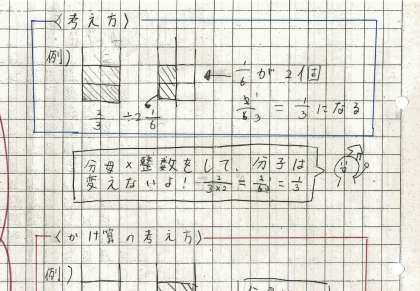 〈考え方〉
例)
1/6が2個
2/3 ÷2 1/6
2/6 3 = 1/3になる
分母×整数をして、分子は
変えないよ! 2/3×2 = 2/6 3 = 1/3
〈かけ算の考え方〉
例)